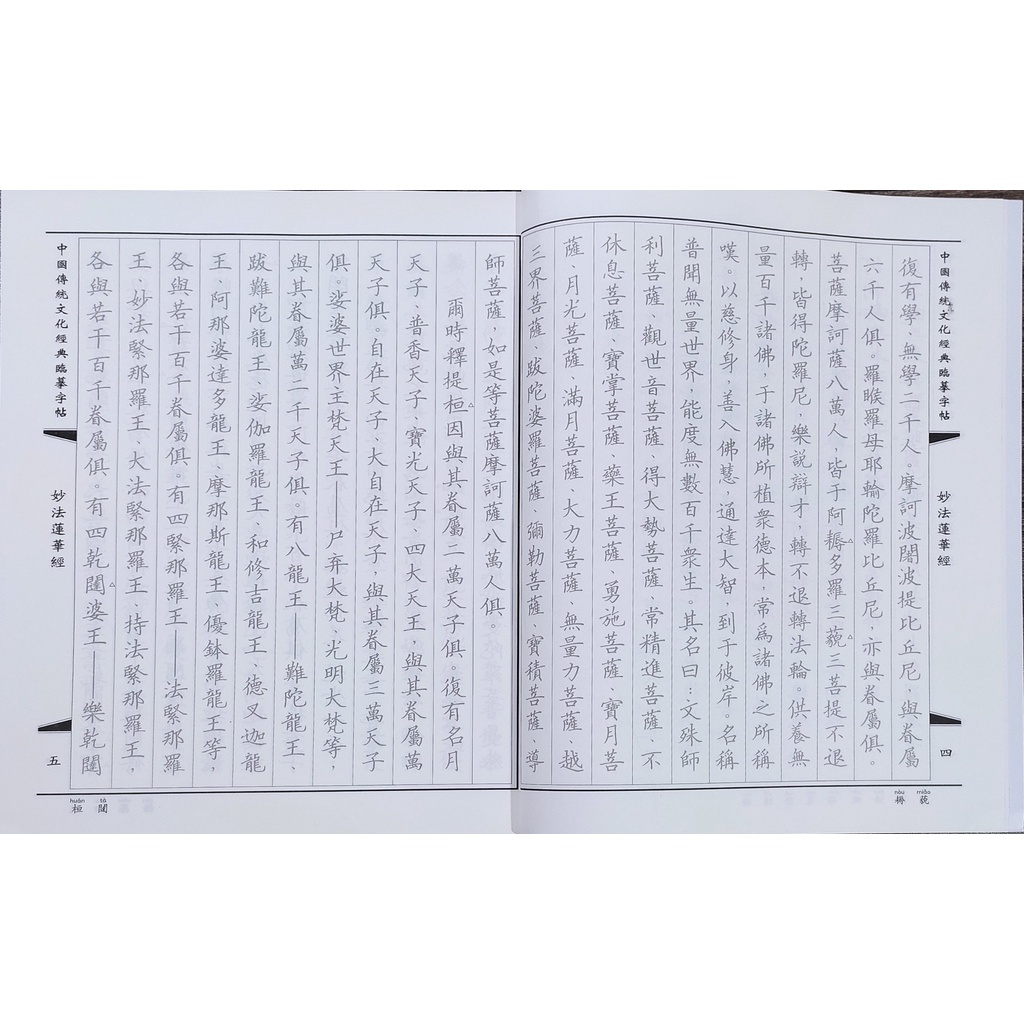 中國傳統文化經典臨摹字帖
妙法蓮華經
四
復有學、無學二千人。摩訶波闍波提比丘尼，與眷屬
六千人俱。羅睺羅母耶輸陀羅比丘尼，亦與眷屬俱。
菩薩摩訶薩八萬人，皆于阿耨多羅三藐三菩提不退
轉，皆得陀羅尼，樂說辯才，轉不退轉法輪。供養無
量百千諸佛，于諸佛所植衆德本，常爲諸佛之所稱
嘆。以慈修身，善入佛慧，通達大智，到于彼岸。名稱
普聞無量世界，能度無數百千衆生。其名曰：文殊師
利菩薩、觀世音菩薩、得大勢菩薩、常精進菩薩、不
休息菩薩、寶掌菩薩、藥王菩薩、勇施菩薩、寶月菩
薩、月光菩薩、滿月菩薩、大力菩薩、無量力菩薩、越
三界菩薩、跋陀婆羅菩薩、彌勒菩薩、寶積菩薩、導
nòu miǎo
耨 藐
師菩薩，如是等菩薩摩訶薩八萬人俱。
爾時釋提桓因與其眷屬二萬天子俱。復有名月
天子、普香天子、寶光天子、四大天王，與其眷屬萬
天子俱。自在天子、大自在天子，與其眷屬三萬天子
俱。娑婆世界主梵天王——尸弃大梵、光明大梵等，
與其眷屬萬二千天子俱。有八龍王——難陀龍王、
跋難陀龍王、娑伽羅龍王、和修吉龍王、德叉迦龍
王、阿那婆達多龍王、摩那斯龍王、優鉢羅龍王等，
各與若干百千眷屬俱。有四緊那羅王——法緊那羅
王、妙法緊那羅王、大法緊那羅王、持法緊那羅王，
各與若干百千眷屬俱。有四乾闥婆王——樂乾闥
中國傳統文化經典臨摹字帖
妙法蓮華經
五
huán tà
桓 闥